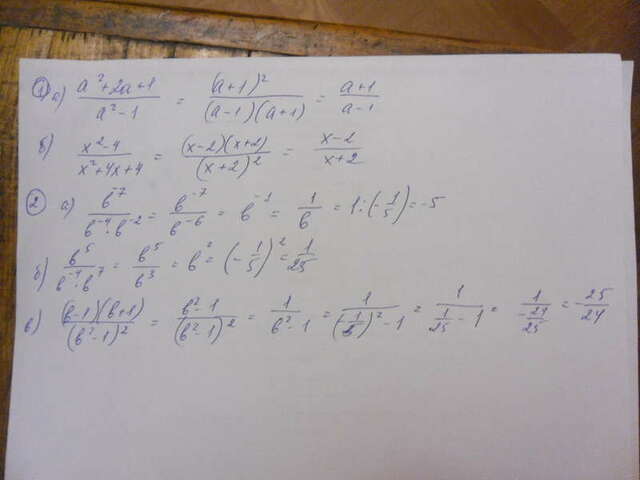 ① а) (a²+2a+1)/(a²-1) = (a+1)²/((a-1)(a+1)) = (a+1)/(a-1)
б) (x²-4)/(x²+4x+4) = (x-2)(x+2)/(x+2)² = (x-2)/(x+2)
② а) b⁻⁷/(b⁻⁴·b⁻²) = b⁻⁷/b⁻⁶ = b⁻¹ = 1/b = 1:(-1/5) = -5
б) b⁵/(b⁻⁴·b⁷) = b⁵/b³ = b² = (-1/5)² = 1/25
в) (b-1)(b+1)/(b²-1)² = (b²-1)/(b²-1)² = 1/(b²-1) = 1/((-1/5)²-1) = 1/(1/25-1) = 1/(-24/25) = -25/24